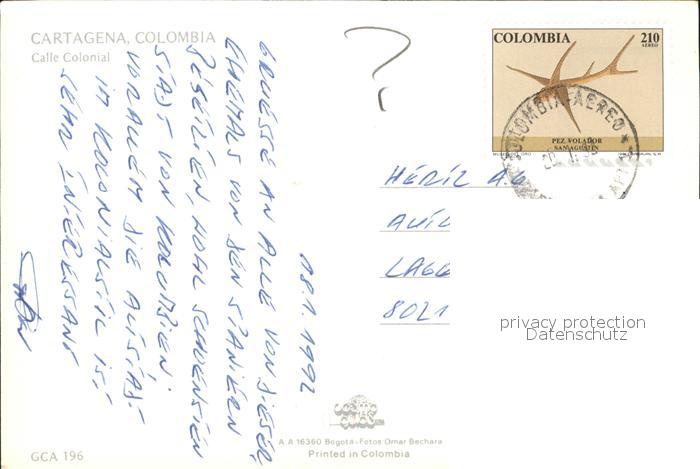 CARTAGENA, COLOMBIA
Calle Colonial
18.1.1992
GRUESSE AN ALLE VON DIESER,
EHEMALS VON DEN SPANIERN
WOHL SCHOENSTEN
STADT VON KOLUMBIEN.
VORALLEM DIE ALTSTADT
IM KOLONIALSTIL IST
SEHR INTERESSANT
?
COLOMBIA
210
AEREO
PEZ VOLADOR
SAN AGUSTIN
COLOMBIA-AEREO
8021
privacy protection
Datenschutz
A.A 16360 Bogotá-Fotos Omar Bechara
Printed in Colombia
GCA 196